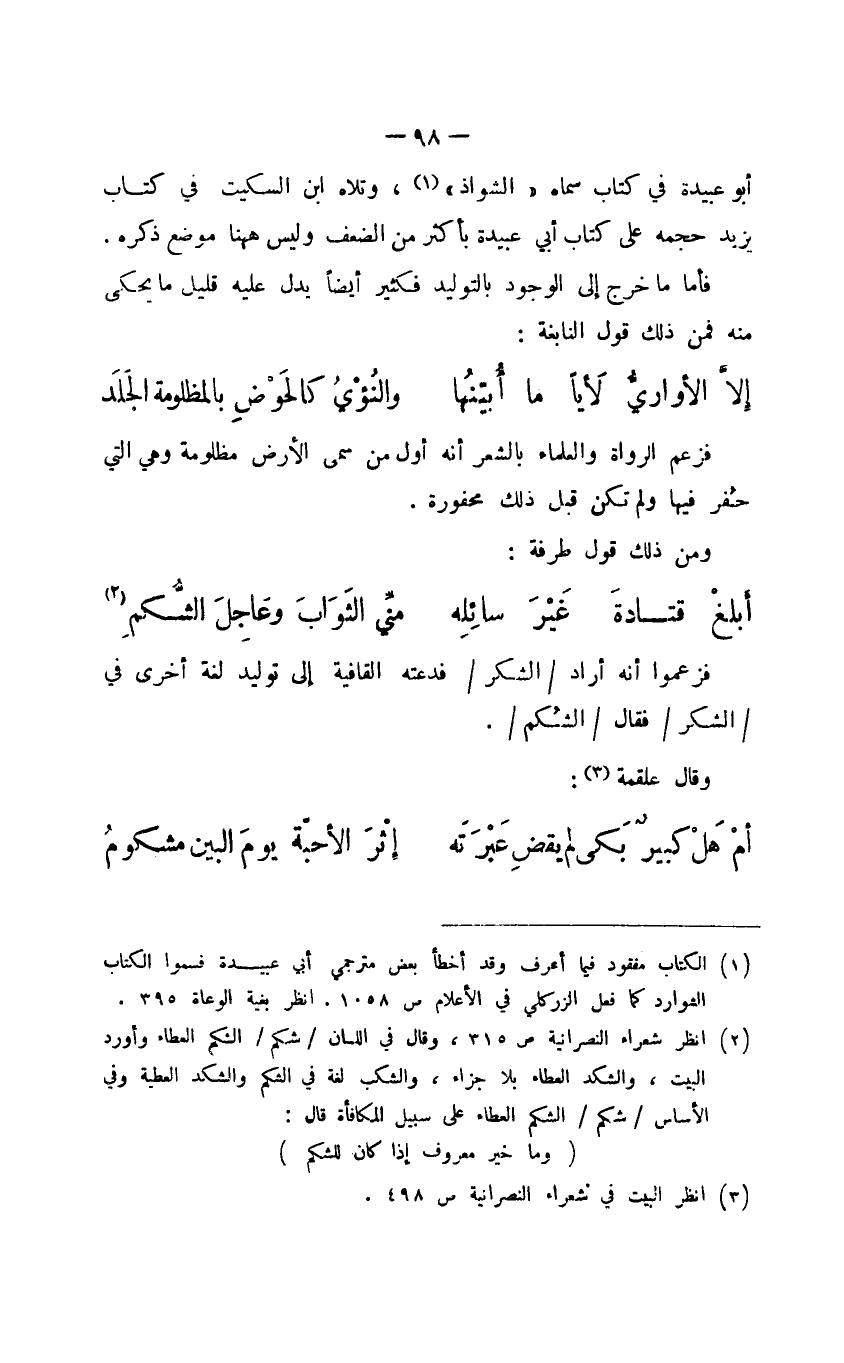 — ٩٨ —
أبو عبيدة في كتاب سماه « الشواذ » (١) ، وتلاه ابن السكيت في كتاب
يزيد حجمه على كتاب أبي عبيدة بأكثر من الضعف وليس ههنا موضع ذكره .
فأما ما خرج إلى الوجود بالتوليد فكثير أيضاً يدل عليه قليل ما يحكى
منه فمن ذلك قول النابغة :
إلاَّ الأواريُّ لَأياً ما أُبَيّنُها والنُؤْيُ كالحَوْضِ بالمظلومة الجَلَد
فزعم الرواة والعلماء بالشعر أنه أول من سمى الأرض مظلومة وهي التي
حُفر فيها ولم تكن قبل ذلك محفورة .
ومن ذلك قول طرفة :
أَبلغْ قتادةَ غَيْرَ سائِلِه منّي الثَوَابَ وعَاجِلَ الشُّكمِ (٢)
فزعموا أنه أراد / الشكر / فدعته القافية إلى توليد لغة أخرى في
/ الشكر / فقال / الشُكم / .
وقال علقمة (٣) :
أمْ هَلْ كبيرٌ بَكى لم يقضِ عَبْرَتَه إثْرَ الأحبّة يومَ البين مشكومُ
(١) الكتاب مفقود فيما أعرف وقد أخطأ بعض مترجمي أبي عبيدة فسموا الكتاب
الشوارد كما فعل الزركلي في الأعلام ص ١٠٥٨ . انظر بغية الوعاة ٣٩٥ .
(٢) انظر شعراء النصرانية ص ٣١٥ ، وقال في اللسان / شكم / الشكم العطاء وأورد
البيت ، والشكد العطاء بلا جزاء ، والشكب لغة في الشكم والشكد العطية وفي
الأساس / شكم / الشكم العطاء على سبيل المكافأة قال :
( وما خير معروف إذا كان للشكم )
(٣) انظر البيت في شعراء النصرانية ص ٤٩٨ .